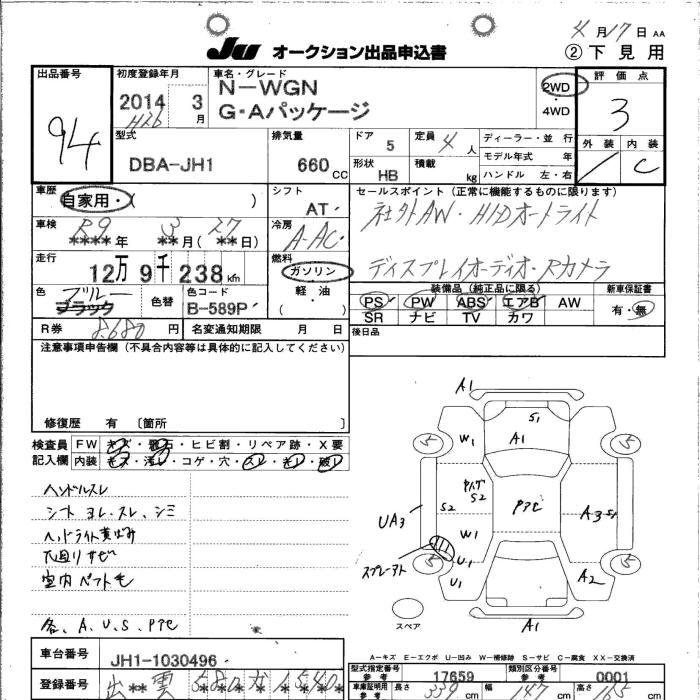 4月17日 AA
JU オークション出品申込書 ②下見用
出品番号 初度登録年月 車名・グレード 評価点
94 2014 3月 H26 N-WGN G・Aパッケージ 2WD 4WD 3
外装 内装
C
型式 排気量 ドア 5 定員 4人 ディーラー・並行
DBA-JH1 660CC 形状 HB 積載 kg モデル年式 年
ハンドル 左・右
車歴 シフト セールスポイント (正常に機能するものに限ります)
自家用・( ) AT 社外AW・HIDオートライト
車検 R9 3 27 冷房
****年 **月(**日) A-AC ディスプレイオーディオ・Rカメラ
走行 燃料
12万9千238km ガソリン 装備品 (純正品に限る) 新車保証書
色 ブルー ブラック 色替 色コード B-589P 軽油 ( )
PS PW ABS エアB AW 有・無
SR ナビ TV カワ
R券 8,680円 名変通知期限 月 日 後日品
注意事項申告欄 (不具合内容等は具体的に記入してください)
修復歴 有 〔箇所 〕
検査員 FW キズ・飛石・ヒビ割・リペア跡・X要
記入欄 内装 キズ・汚レ・コゲ・穴・スレ・キレ・破レ
ハンドルスレ
シート ヨレ、スレ、シミ
ヘッドライト黄ばみ
下廻りサビ
室内ペット毛
各、A、U、S、Pアセ
A1
S1
5 W1 A1 5
S2 S2 Pアセ A3 S1
UA3
W1
スプレーアト U1 U1 5 A2 5
スペア A1
A-キズ E-エクボ U-凹み W-補修跡 S-サビ C-腐食 XX-交換済
車台番号 JH1-1030496
型式指定番号 参考 17659 類別区分番号 参考 0001
登録番号 出**雲 580 1540
車庫証明用 参考 長さ 339cm 幅 147cm 高さ 165cm